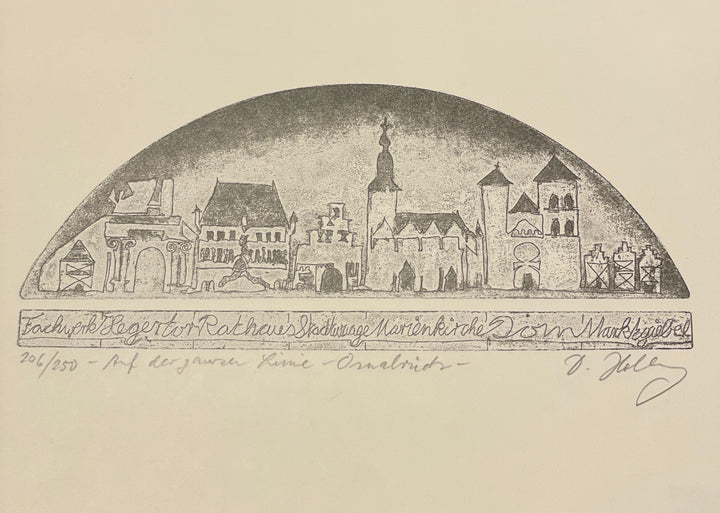 Fachwerk Hegertor Rathaus Stadtwaage Marienkirche Dom Marktgiebel
206/250 - Auf der ganzen Linie - Osnabrück - D.